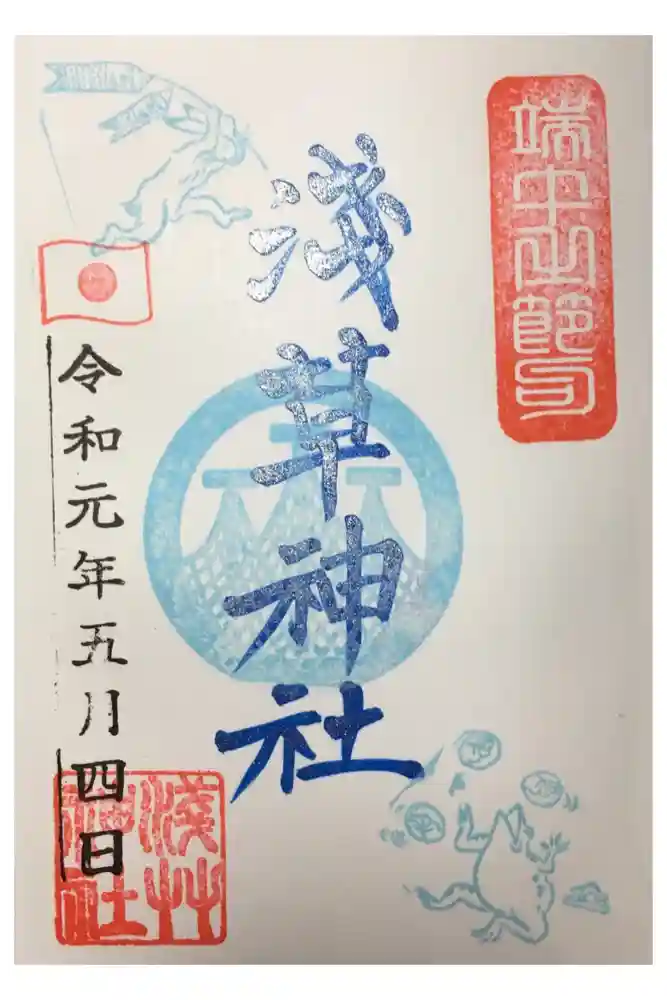 端午之節句
淺草神社
令和元年五月四日
淺艸
神社